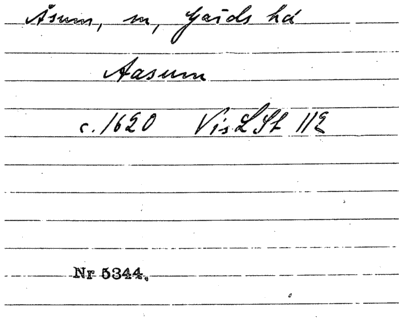 Åsum, sn, Gärds hd
Aasum
c. 1620 VisLSt 112
Nr 5344.